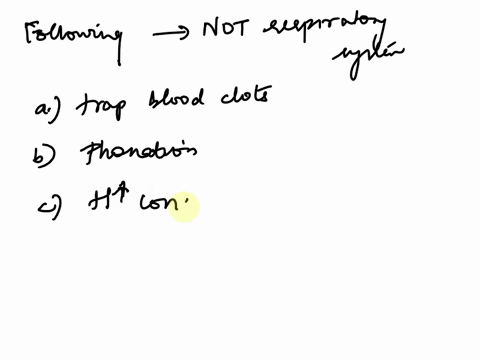 Following → NOT respiratory
system
a.) trap blood clots
b) Phonation
c) H↑ con.